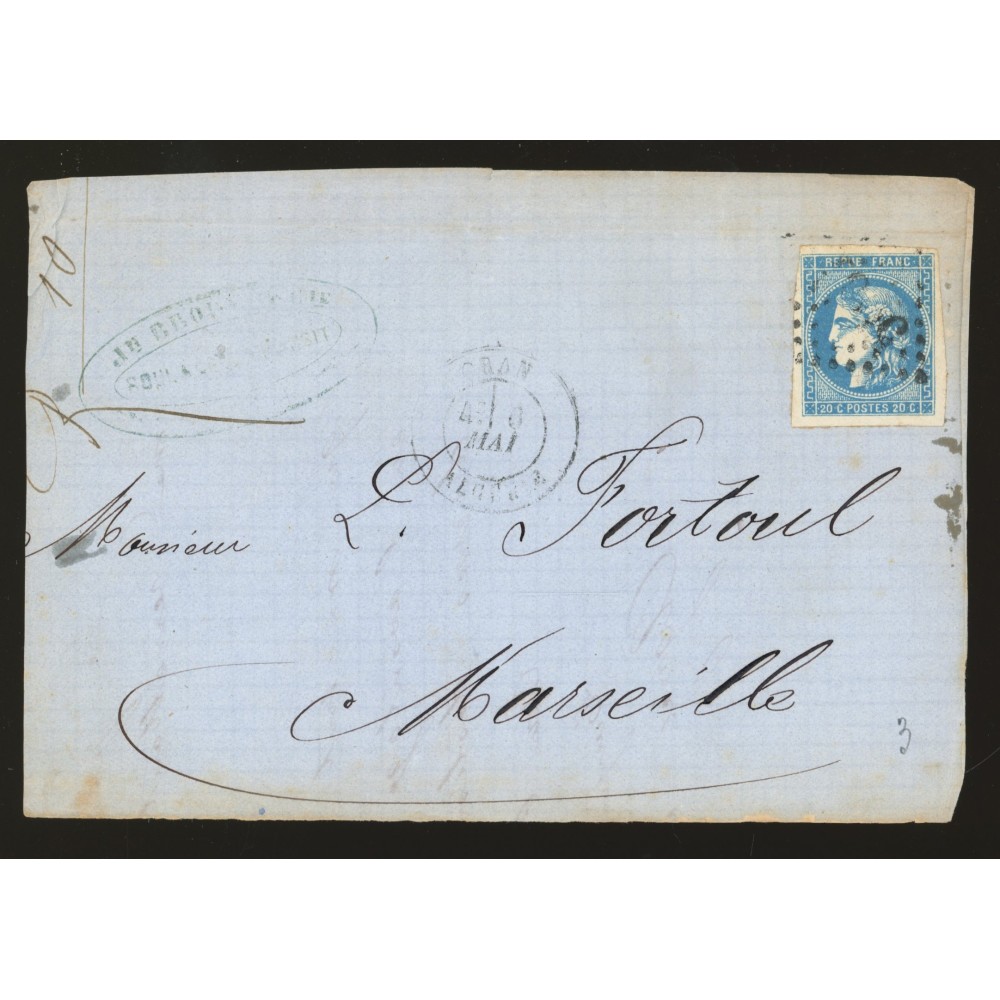 10
ORAN
6
MAI
ALGERIE
REPUB FRANC
20 C POSTES 20 C
Monsieur L. Fortoul
Marseille
3